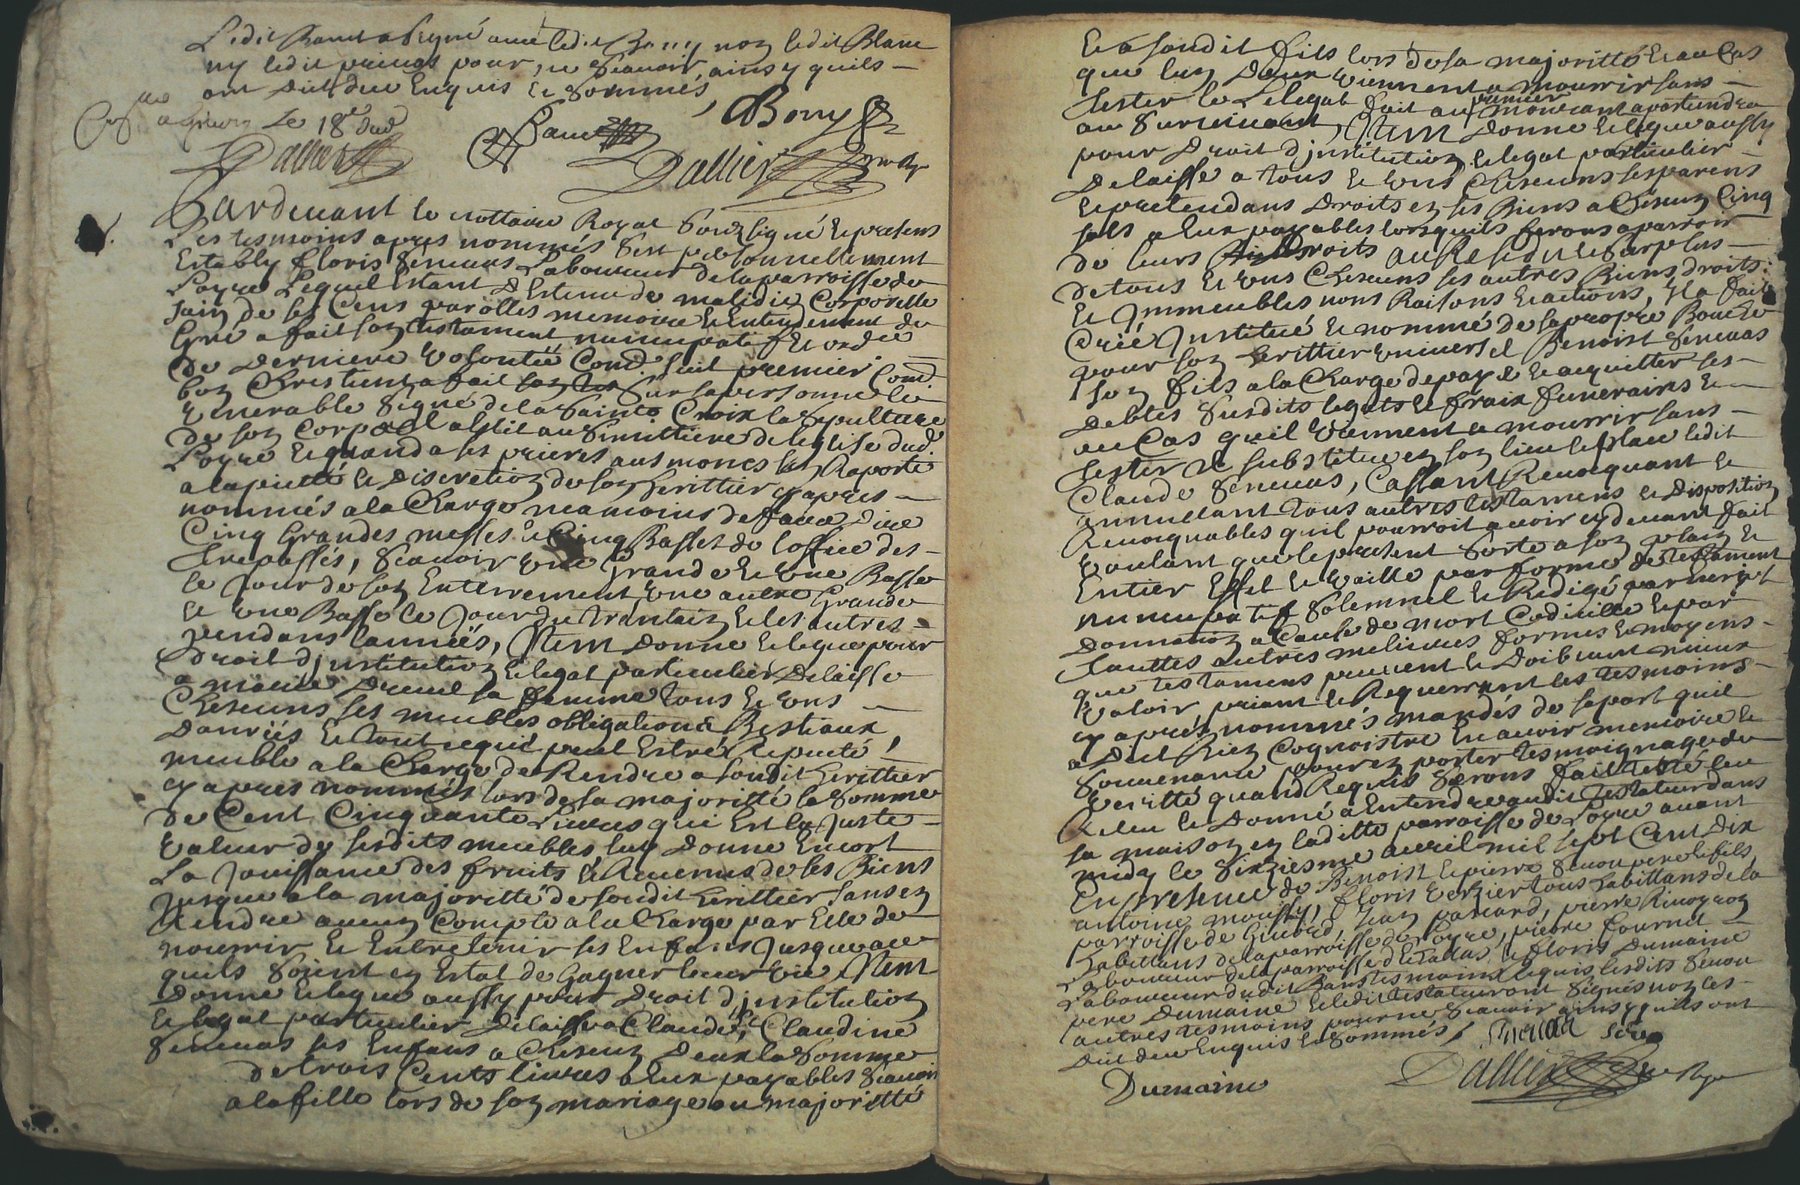 Ledit Banet a signé avec ledit Bony non ledit Blanc
ny ledit pour ne scavoir ainsy quils
ont dit deue Enquis et sommés
a le 18e dud
Banet Bony
Dallier Dallier
Pardevant le nottaire Royal soubsigné et presens
Les tesmoins apres nommés sest personnellement
Estably floris Seneuas Laboureur de la parroisse de
Loyre Lequel Estant detenu de maladie Corporelle
sain de ses sens parolles memoire et Entendement de
Gré a fait son testament nuncupatif et ordce
de derniere volonté Comd suit premier Comd
bon Chrestient a fait sur sa personne le
venerable signe de la Sainte Croix la sepulture
de son Corps a estit au Simittiere de leglise dud.
Loyre et quand a ses prieres ausmones sen Raporte
a la pieté et discretion de son herittier cy apres
nommés a la Charge neamoins de faire dire
Cinq Grandes messes et Cinq Basses de loffice des
trepassés, scavoir une Grande et une Basse
le jour de son Enterrement une autre Grande
et une Basse le jour du trantain et les autres
pendans lannéés, Item donne et legue pour
droit djnstitution et legat particulier delaisse
a marie dreuil sa femme tous et uns
Chescuns ses meubles obligations Bestiaux
danréés et tout ce qui peut Estre Reputé
meuble a la Charge de Rendre a sondit herittier
cy apres nommés lors de sa majoritté la somme
de Cent Cinquante Livres qui est la juste
valeur de sesdits meubles luy donne Encort
La jouissance des fruits et Revenus de ses Biens
jusque a la majoritté de sondit herittier sans en
Rendre aucun Compte a la Charge par Elle de
nourrir et Entretenir ses Enfans jusqueace
quils soient en Estat de Gagner leur vie Item
donne et legue aussy pour droit djnstitution
et legat particulier delaisse a Claude, et Claudine
Seneuas ses Enfans a Chescun deux la somme
de trois Cents livres a Eux payables scavoir
a la fille lors de son mariage ou majoritté
Et a sondit fils lors de sa majoritté et au Cas
que luy deux viennent a mourrir sans
tester le Lelegat fait au premier mourant apartiendra
au survivant, Item donne et legue aussy
pour droit djnstitution et legat particulier
delaisse a tous et uns Chescuns ses parens
et pretendans droits en ses Biens a Chescun Cinq
sols a Eux payables lors quils feront aparroir
de leurs droits au Residu et surplus
de tous et uns Chescuns ses autres Biens droits
et jmmeubles noms Raisons et actions, Il a fait
Créé Institué et nommé de sa propre Bouche
pour son herittier universel Benoist Seneuas
son fils a la Charge de payer et acquitter ses
debtes susdits legats et fraix funeraires et
au Cas quil viennent a mourrir sans
tester Il substitue en son lieu et place ledit
Claude Seneuas, Cassant Revocquant et
annullant tous autres testamens et disposition
Revocquables quil pourroit avoir cy devant fait
voulant que le present sorte a son plain et
Entier Effet et vaille par forme de testament
nuncupatif solemnel et Redigé par escript
donnation a Cause de mort Codicille et par
touttes autres melieures formes et moyens
que testamens peuvent et doibvent mieux
valoir priant et Requerrant les tesmoins
cy aprés nommés mandés de sa part quil
a dit bien Cognoistre En avoir memoire et
souvenance pour en porter tesmoignage de
verrité quand Requis seront fait leu
Releu et donné a Entendre audit testateur dans
sa maison en laditte parroisse de Loyre avant
midy le sixziesme avril mil sept Cent dix
En presence de Benoist et pierre Seuou pere et fils
antoine moussy, floris verzier tous habittans de la
parroisse de Jean panard, pierre
habittans de la parroisse de Loyre, pierre fournel
Laboureur de la parroisse d et floris dumaine
Laboureur dudit tesmoins requis lesdits Seuou
pere dumaine et ledit testateur ont signés non les
autres tesmoins pour ne scavoir ainsy quils ont
dit deue Enquis et sommés,
Dumaine Dallier